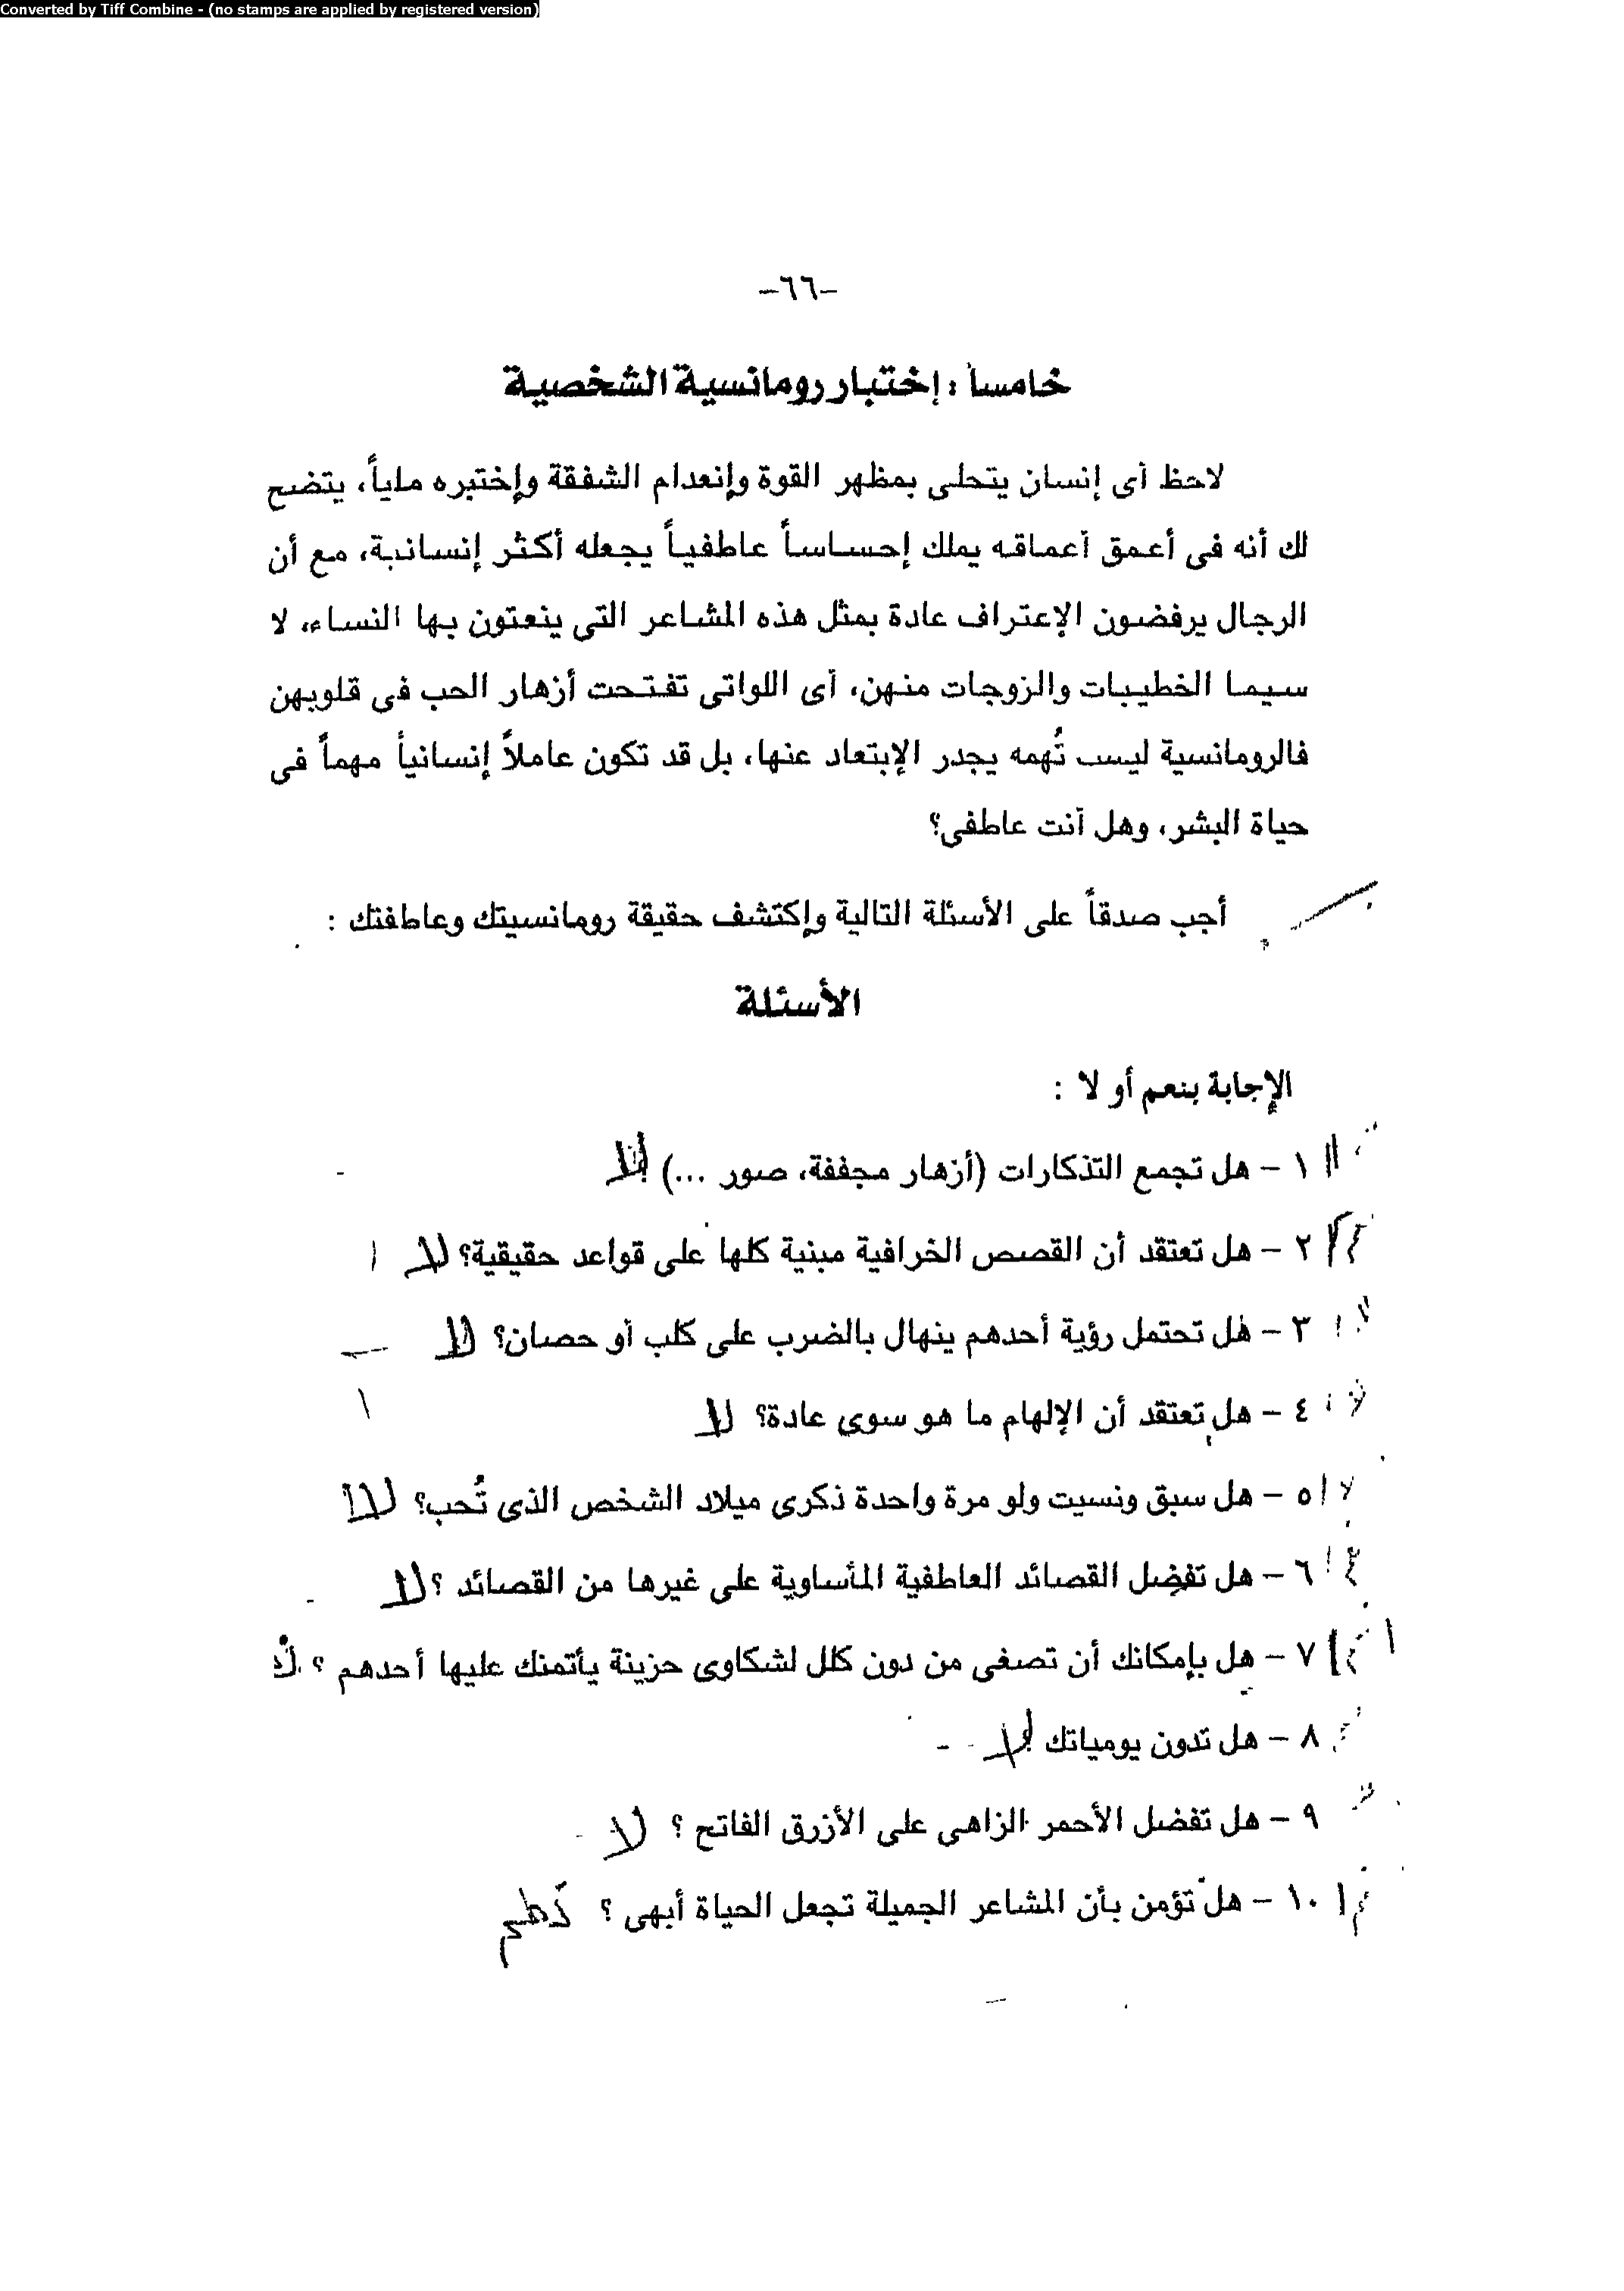 Converted by Tiff Combine - (no stamps are applied by registered version)
-٦٦-
خامساً : إختبار رومانسية الشخصية
لاحظ أى إنسان يتحلى بمظهر القوة وإنعدام الشفقة وإختبره ملياً، يتضح
لك أنه فى أعمق أعماقه يملك إحساساً عاطفياً يجعله أكثر إنسانية، مع أن
الرجال يرفضون الإعتراف عادة بمثل هذه المشاعر التى ينعتون بها النساء، لا
سيما الخطيبات والزوجات منهن، أى اللواتى تفتحت أزهار الحب فى قلوبهن
فالرومانسية ليست تُهمه يجدر الإبتعاد عنها، بل قد تكون عاملاً إنسانياً مهماً فى
حياة البشر، وهل أنت عاطفى؟
أجب صدقاً على الأسئلة التالية وإكتشف حقيقة رومانسيتك وعاطفتك :
الأسئلة
الإجابة بنعم أو لا :
١ - هل تجمع التذكارات (أزهار مجففة، صور ...) لا
٢ - هل تعتقد أن القصص الخرافية مبنية كلها على قواعد حقيقية؟ لا
٣ - هل تحتمل رؤية أحدهم ينهال بالضرب على كلب أو حصان؟ لا
٤ - هل تعتقد أن الإلهام ما هو سوى عادة؟ لا
٥ - هل سبق ونسيت ولو مرة واحدة ذكرى ميلاد الشخص الذى تُحب؟ لا
٦ - هل تفضل القصائد العاطفية المأساوية على غيرها من القصائد ؟ لا
٧ - هل بإمكانك أن تصغى من دون كلل لشكاوى حزينة يأتمنك عليها أحدهم ؟
٨ - هل تدون يومياتك لا
٩ - هل تفضل الأحمر الزاهى على الأزرق الفاتح ؟ لا
١٠ - هل تؤمن بأن المشاعر الجميلة تجعل الحياة أبهى ؟ نعم